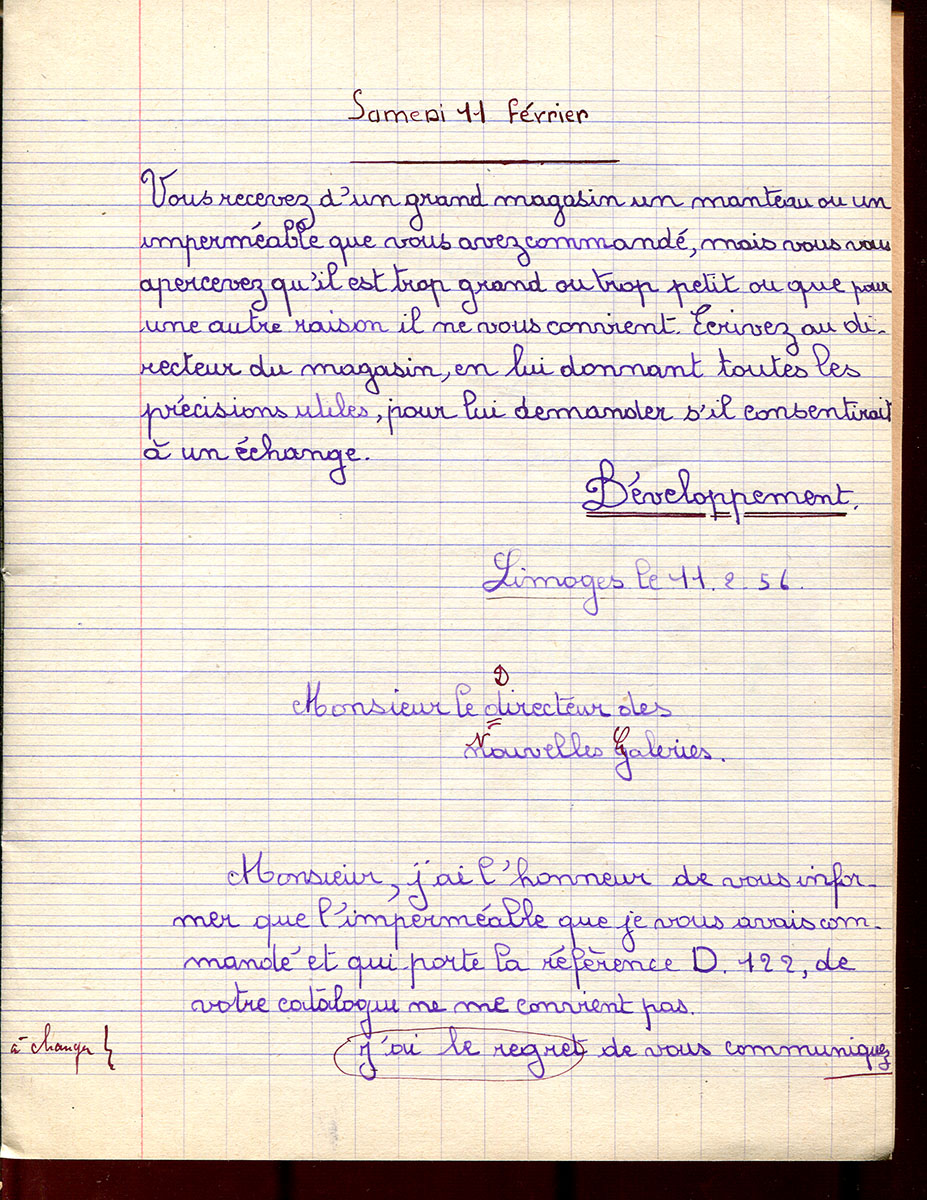 Samedi 11 février
Vous recevez d'un grand magasin un manteau ou un
imperméable que vous avez commandé, mais vous vous
apercevez qu'il est trop grand ou trop petit ou que pour
une autre raison il ne vous convient. Ecrivez au di-
recteur du magasin, en lui donnant toutes les
précisions utiles, pour lui demander s'il consentirait
à un échange.
Développement.
Limoges le 11.2.56.
D
Monsieur le directeur des
Nouvelles Galeries.
Monsieur, j'ai l'honneur de vous infor-
mer que l'imperméable que je vous avais com-
mandé et qui porte la référence D. 122, de
votre catalogue ne me convient pas.
à changer } j'ai le regret de vous communiquez